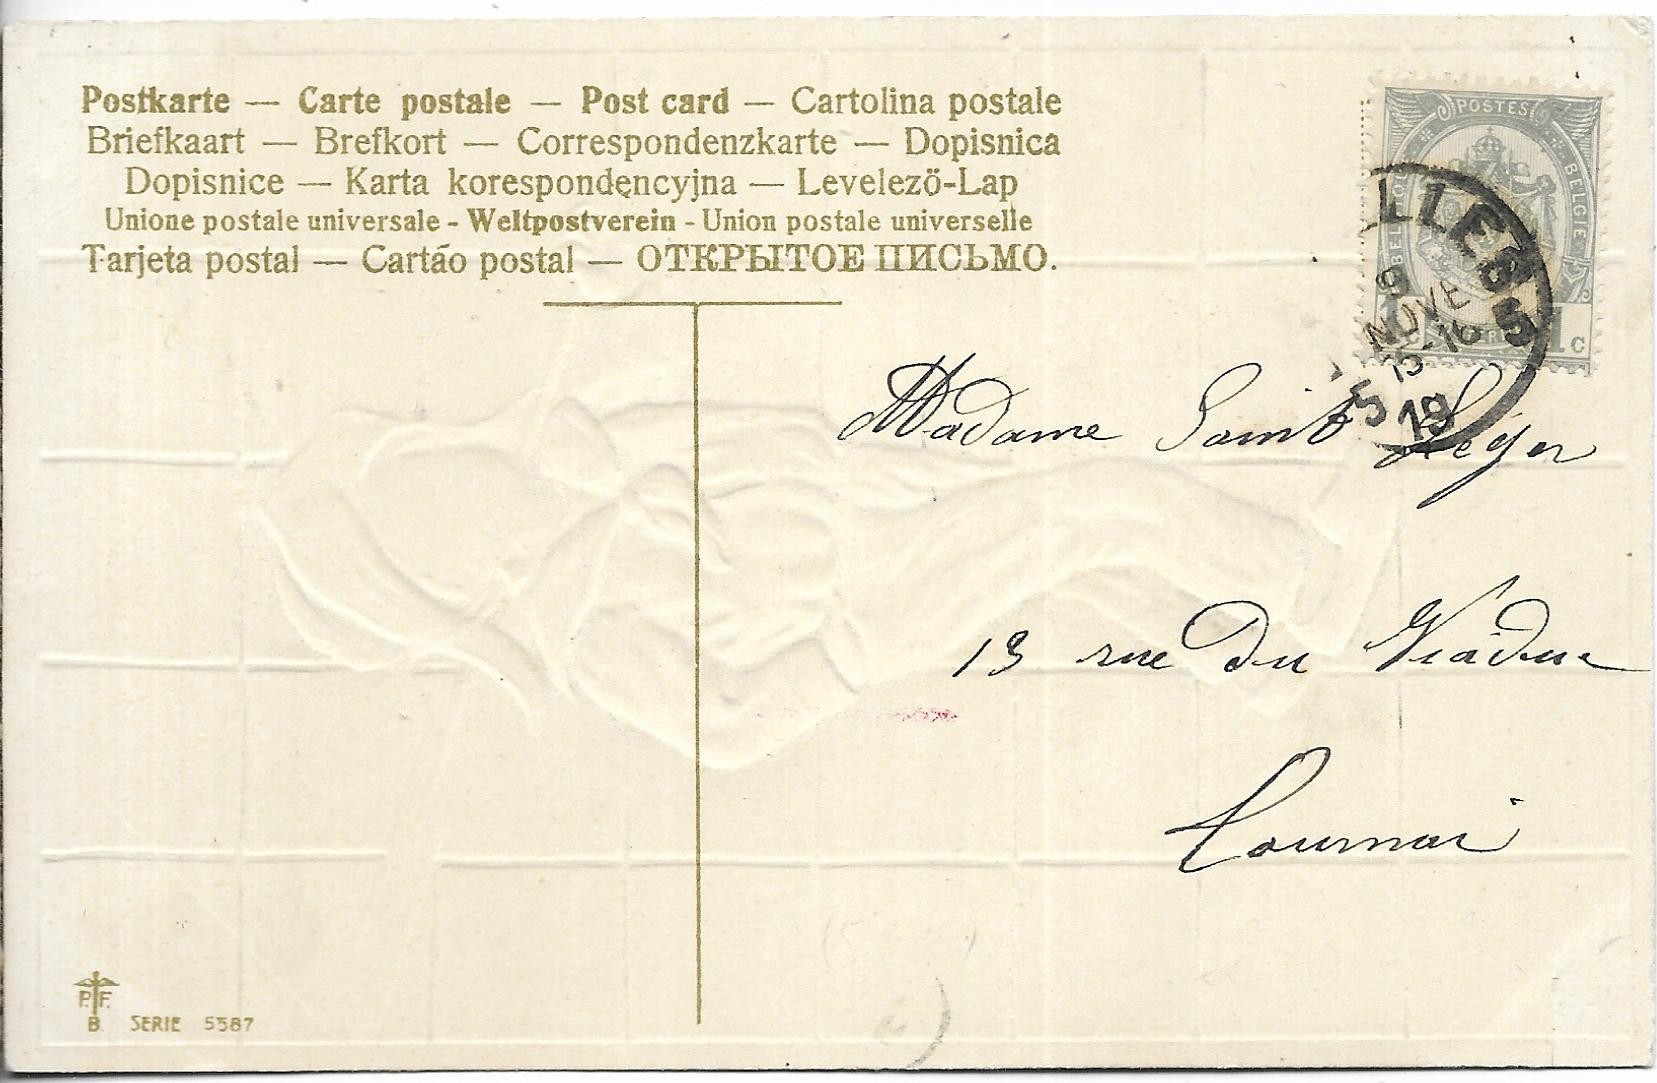 Postkarte — Carte postale — Post card — Cartolina postale
Briefkaart — Brefkort — Correspondenzkarte — Dopisnica
Dopisnice — Karta korespondencyjna — Levelező-Lap
Unione postale universale - Weltpostverein - Union postale universelle
Tarjeta postal — Cartáo postal — ОТКРЫТОЕ ПИСЬМО.
POSTES
BELGIE
1c
LLES 5
9
NOVE
15-16
19
5
Madame Saint Léger
13 rue du Viaduc
Tournai
P. F.
B. SERIE 5587